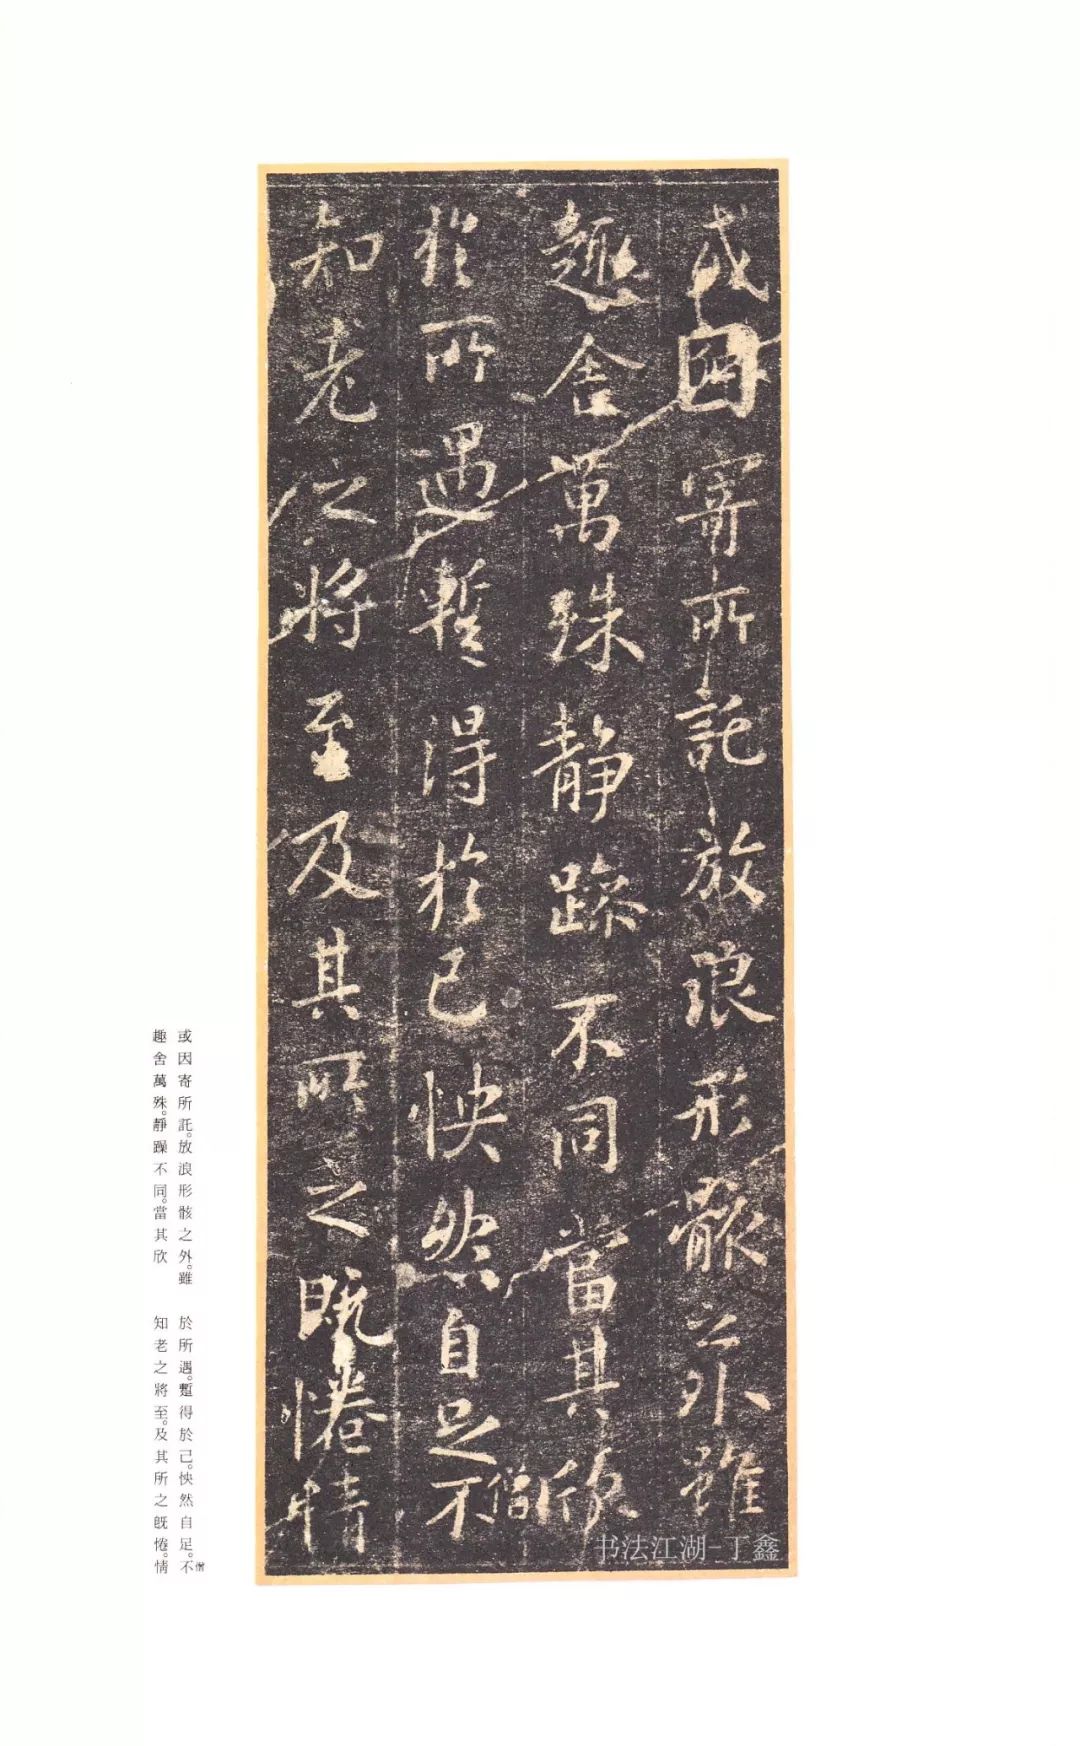 或因寄所託放浪形骸之外雖
趣舍萬殊靜躁不同當其欣
於所遇暫得於己怏然自足不
僧
知老之將至及其所之既惓情
书法江湖-丁鑫
或因寄所託。放浪形骸之外。雖
趣舍萬殊。靜躁不同。當其欣
於所遇。蹔得於己。怏然自足。不
僧
知老之將至。及其所之既惓。情